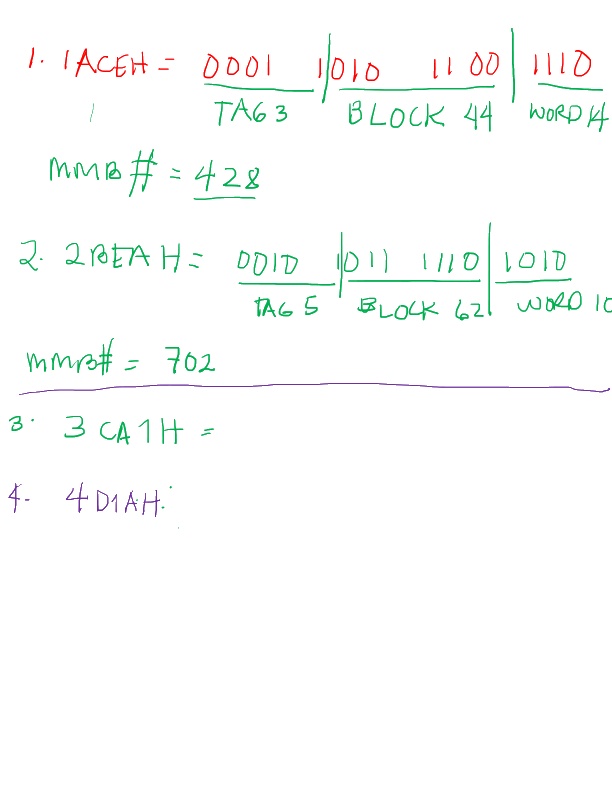 1. 1ACEH = 0001 1|010 1100 | 1110
TAG 3 BLOCK 44 WORD 14
MMB# = 428
2. 2BEAH = 0010 1|011 1110|1010
TAG 5 BLOCK 62 WORD 10
MMB# = 702
3. 3CA1H =
4. 4D1AH: